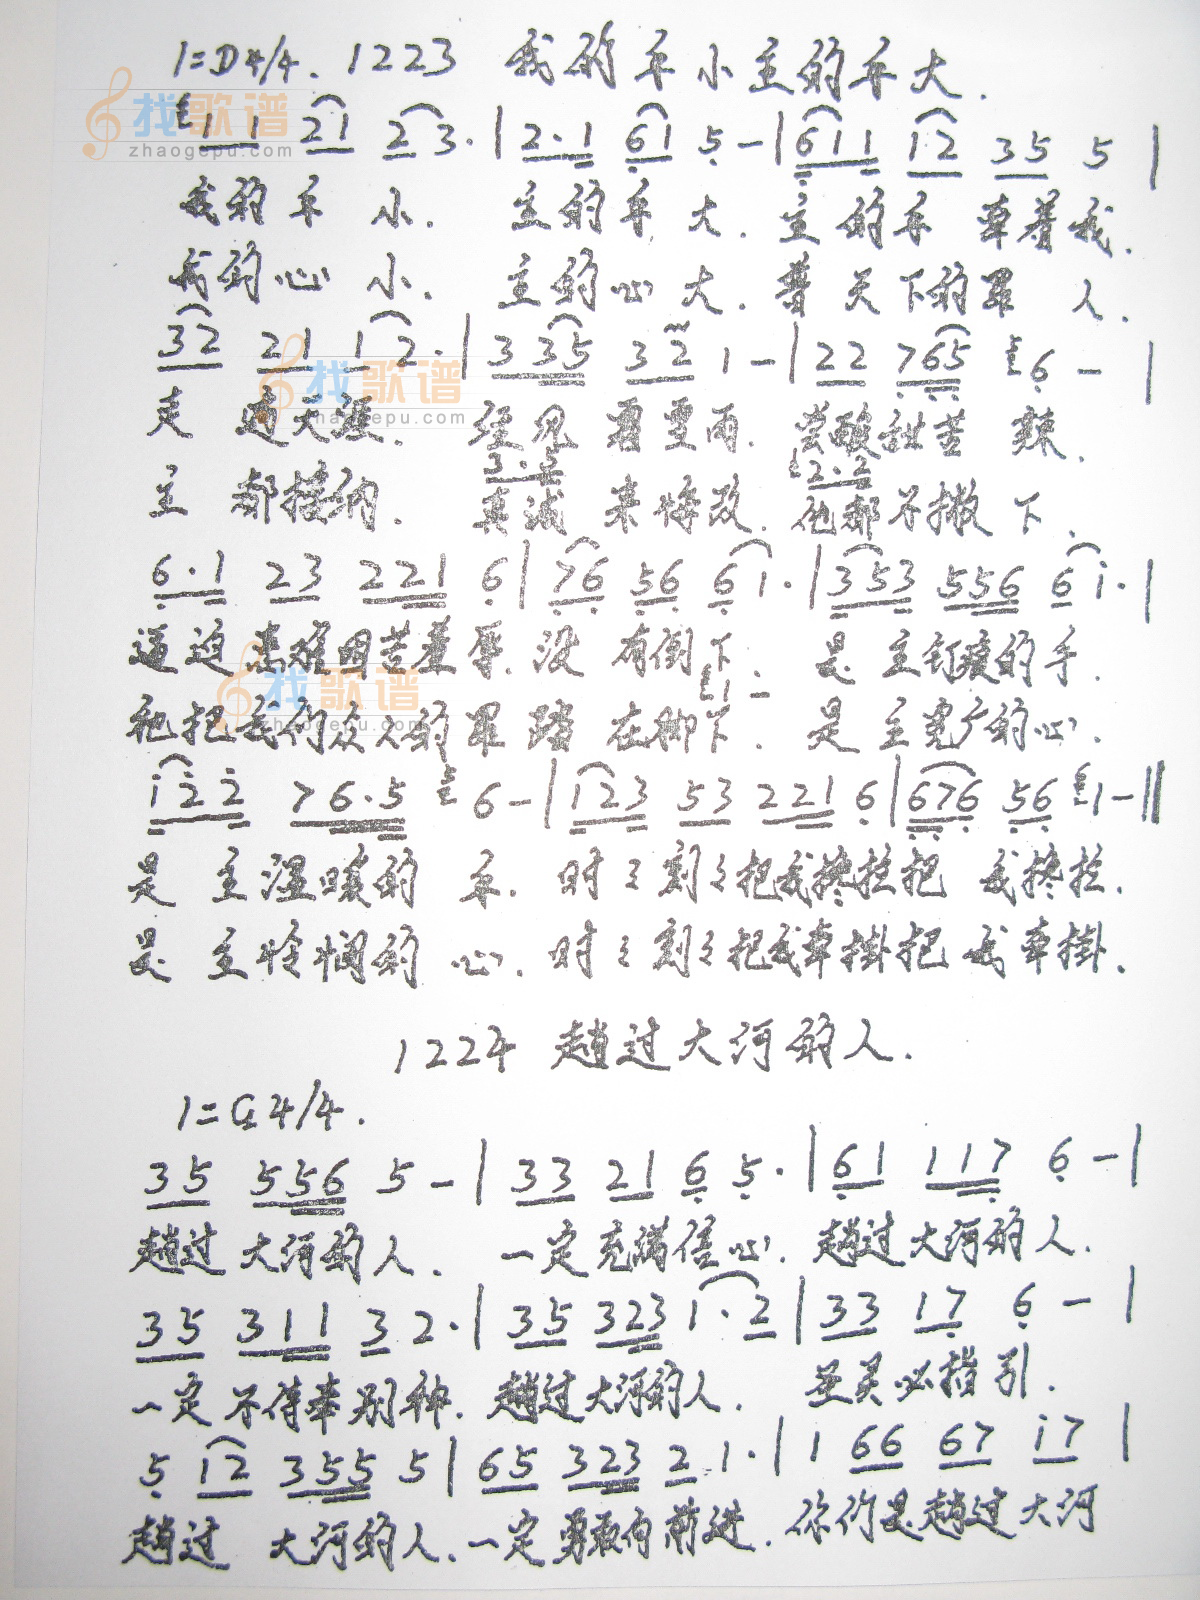 1=D4/4. 1223 我的手小主的手大.
1 1 21 23·|2·1 61 5-|611 12 35 5|
我的手小. 主的手大. 主的手牵着我.
我的心小. 主的心大. 普天下的罪人.
32 21 12·|3 35 32 1-|22 765 6-|
走遍天涯. 经见霜雪雨. 尝酸甜苦辣.
3·5 2·2
主都接纳. 真诚来悔改. 他都不撇下.
6·1 23 221 6|76 56 61·|353 556 6i·|
逼迫患难困苦羞辱. 没有倒下. 是主钉痕的手.
1-
祂把我们众人的罪踏在脚下. 是主宽广的心.
i22 76·5 6-|123 53 221 6|676 56 1-‖
是主温暖的手. 时々刻々把我搀拉把我搀拉.
是主怜悯的心. 时々刻々把我牵掛把我牵掛.
1224 趟过大河的人.
1=G4/4.
35 556 5-|33 21 6 5·|61 117 6-|
趟过大河的人. 一定充满信心. 趟过大河的人.
35 311 3 2·|35 323 1·2|33 17 6-|
一定不侍奉别神. 趟过大河的人. 圣灵必指引.
5 12 355 5|65 323 2 1·|1 66 67 i7|
趟过大河的人. 一定勇敢向前进. 你们是趟过大河
找歌谱
zhaogepu.com
找歌谱
zhaogepu.com
找歌谱
zhaogepu.com